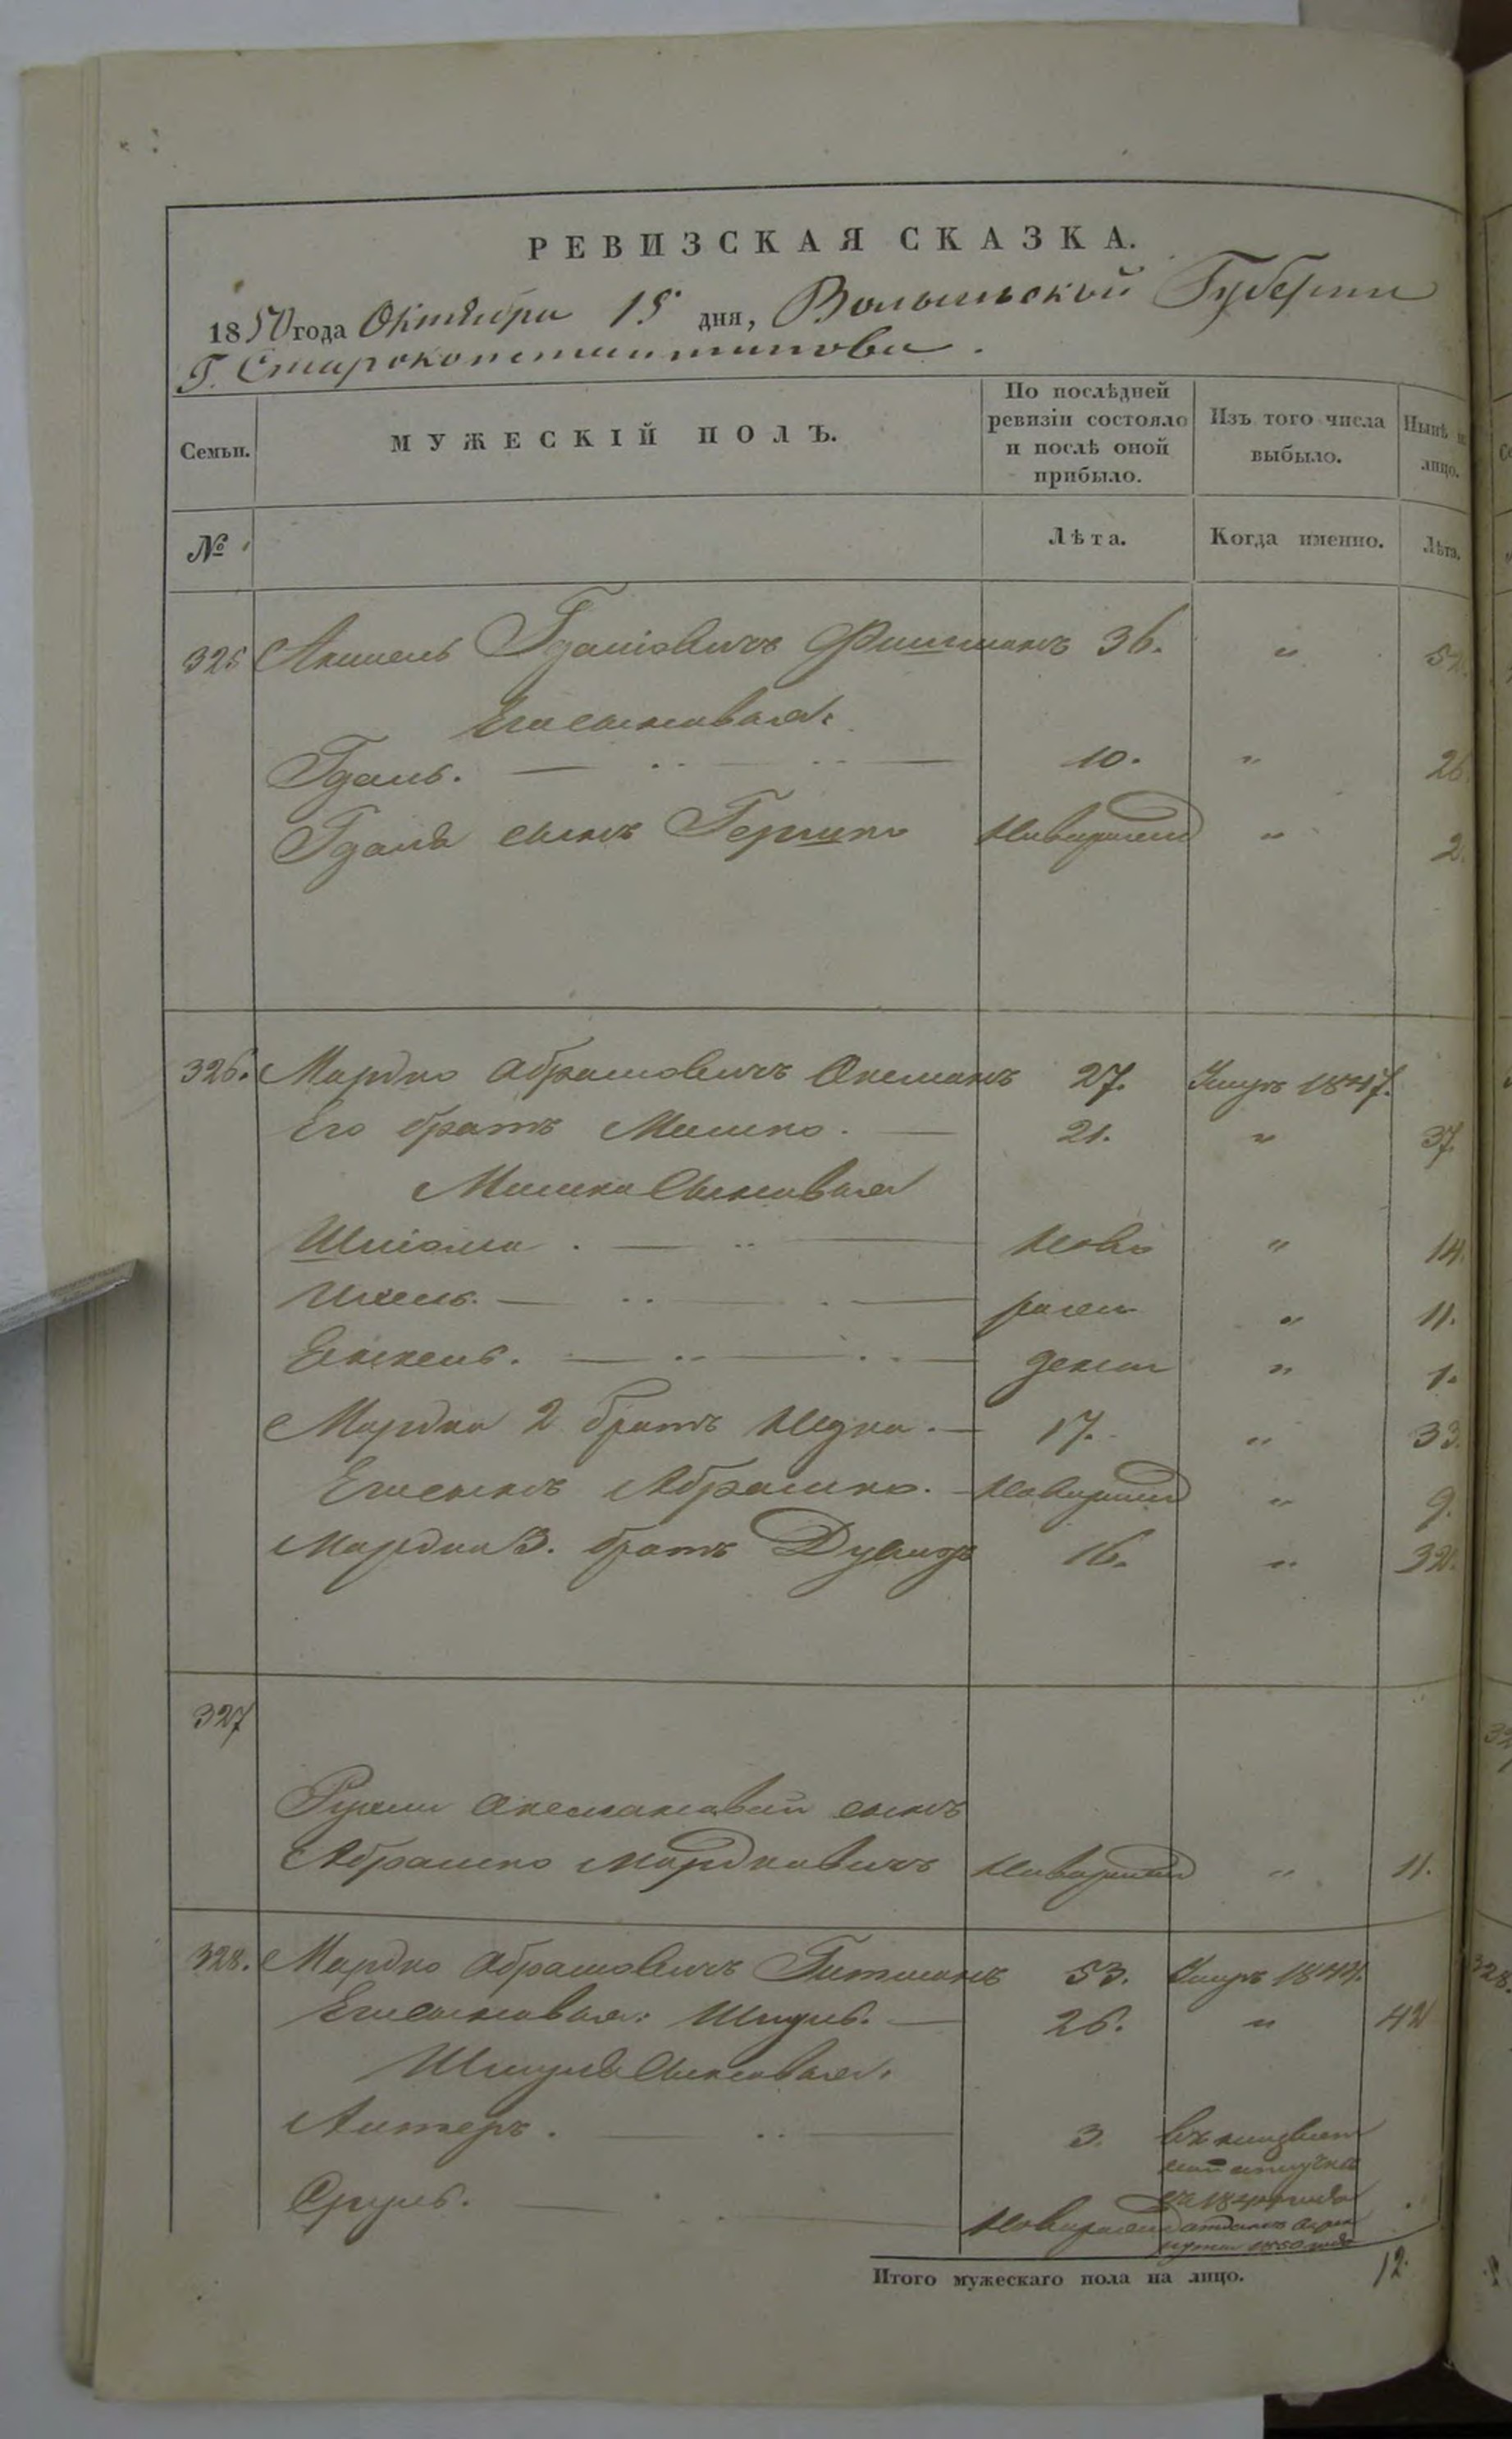 РЕВИЗСКАЯ СКАЗКА.
1850 года Октября 15 дня, Волынской Губерніи
Г. Староконстантинова.
Семьи.
МУЖЕСКІЙ ПОЛЪ.
По послѣдней ревизіи состояло и послѣ оной прибыло.
Изъ того числа выбыло.
Нынѣ на лицо.
№
Лѣта.
Когда именно.
Лѣта.
325 Гдаліовичъ Фишманъ 36. " 52.
Его сыновья:
Гдаль. 10. " 26.
Гдаля сынъ Гершко Новорожд " 2.
326. Мордко Абрамовичъ Аксманъ 27. Умеръ 1847.
Его братъ Мошко. 21. " 37.
Мошка Сыновья
Шліома. Ново " 14.
Ихель. рожен " 11.
Енкель. денны " 1.
Мордка 2 братъ 17. " 33.
Его сынъ Абрашко. Новорожд " 9.
Мордка 3. братъ Дувидъ 16. " 32.
327
Рухли Аксмановой сынъ
Абрамко Мордковичъ Новорожд " 11.
328. Мордко Абрамовичъ Гитманъ 53. Умеръ 1844.
Его сыновья: Шмуль. 26. " 42
Шмуля Сыновья.
Алтеръ. 3. въ неизвѣст
ной отлучкѣ
съ 1844 года
Сруль. Новорожд отданъ въ рек
руты 1850 года
Итого мужескаго пола на лицо. 12.